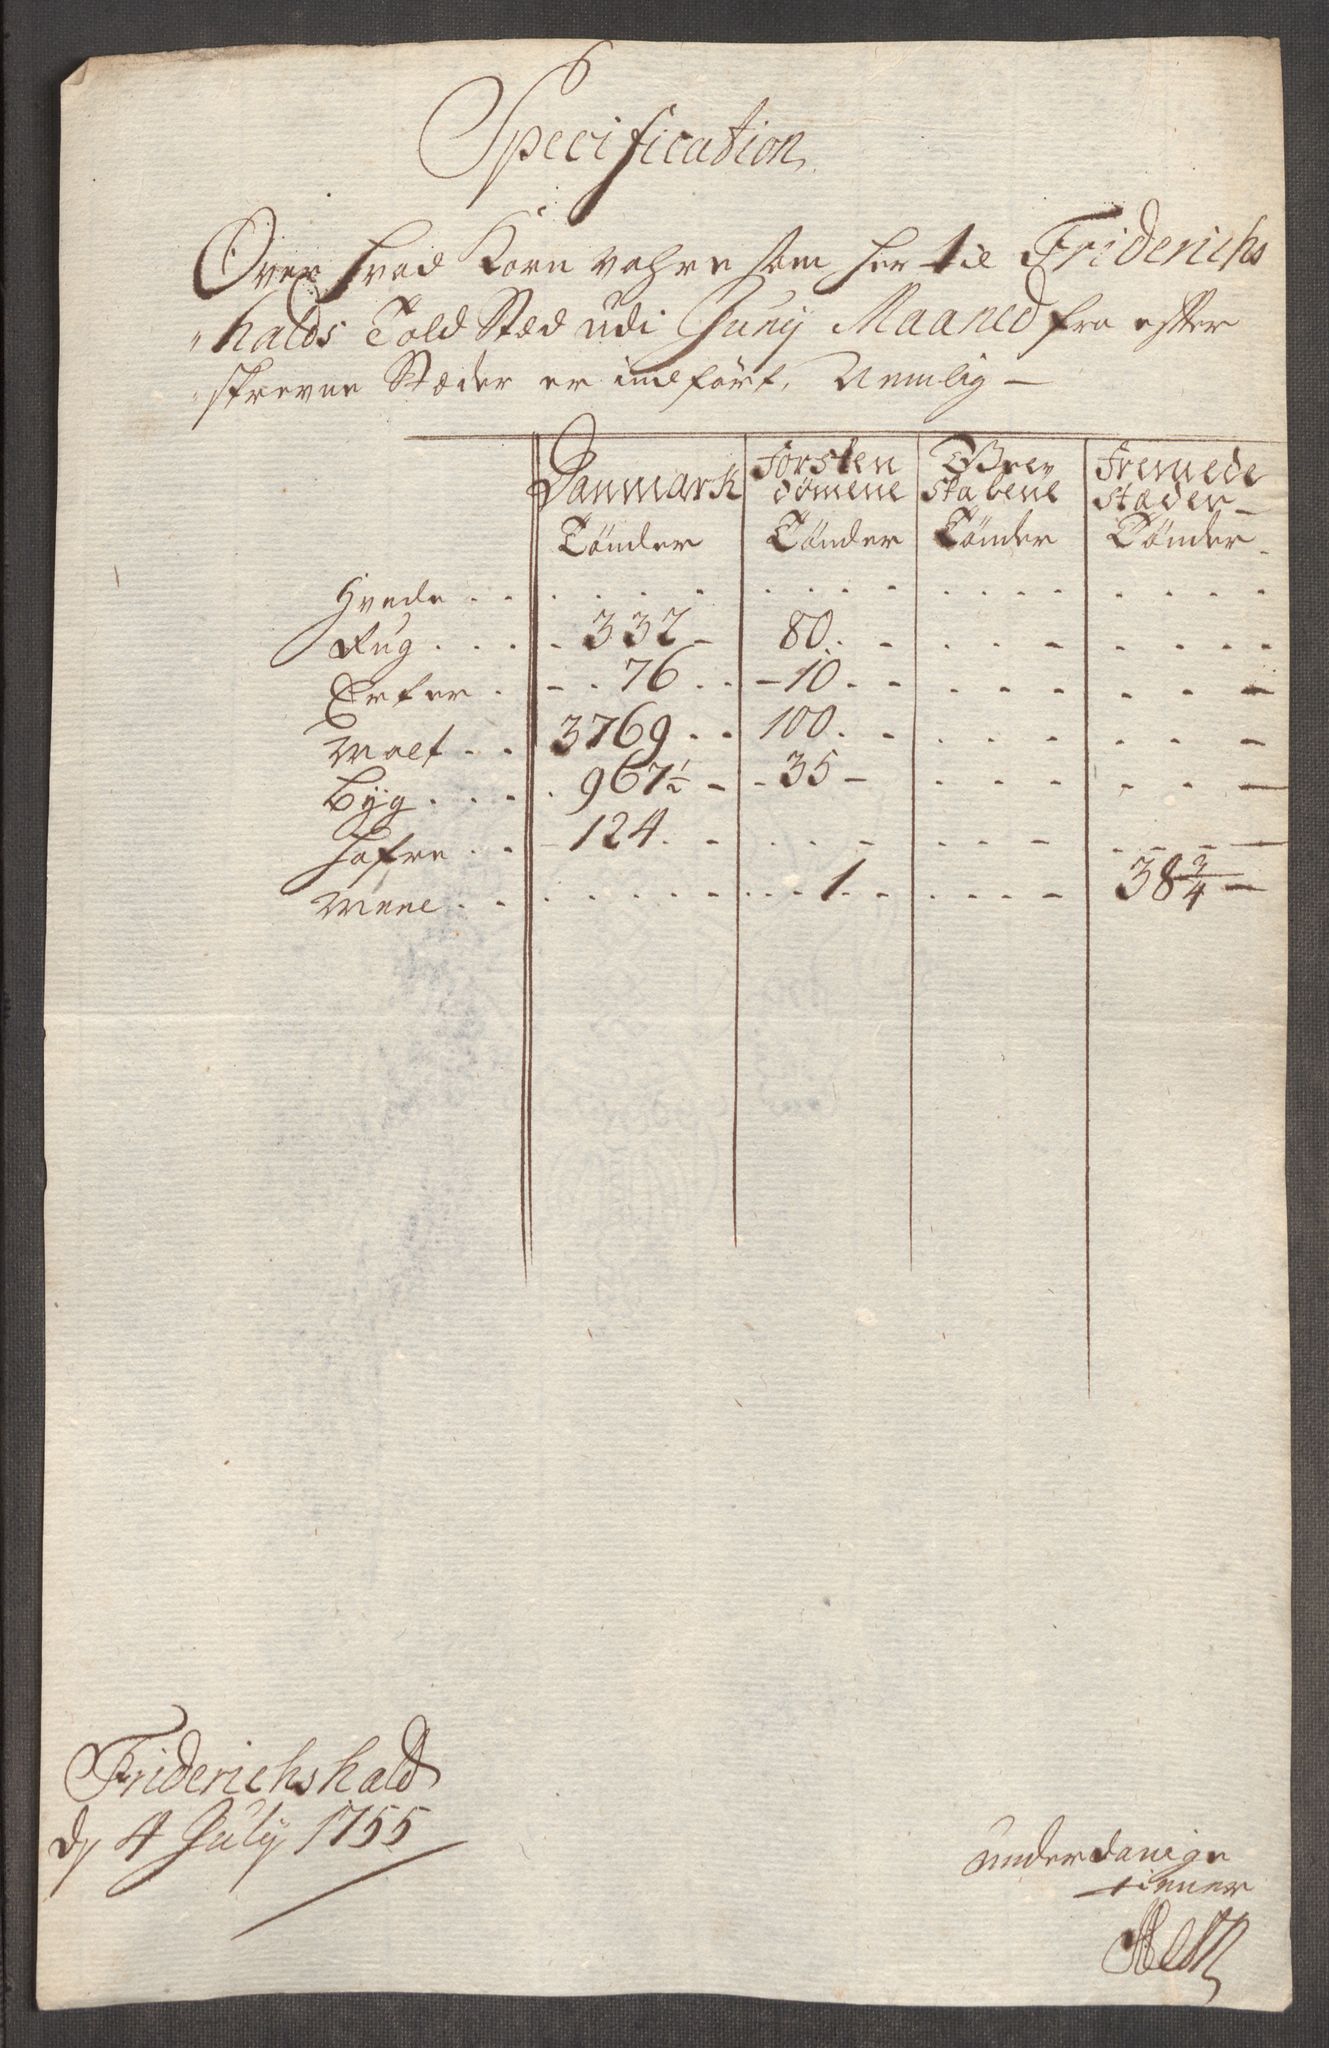 Specification
Over hvad Korn vahre som her til Friderichs
"halds Told Stæd udi Juny Maaned fra efter
"skrevne Stæder er indført, Nemlig —
Danmark Forsten Grev Fremede
dømene skabene stæder
Tønder Tønder Tønder Tønder
Hvede
Rug 332 80
Erter 76 10
Malt 3769 100
Byg 967½ 35
Hafre 124
Meel 1 38¾
Friderichshald
d 4 July 1755
underdanige
tiener